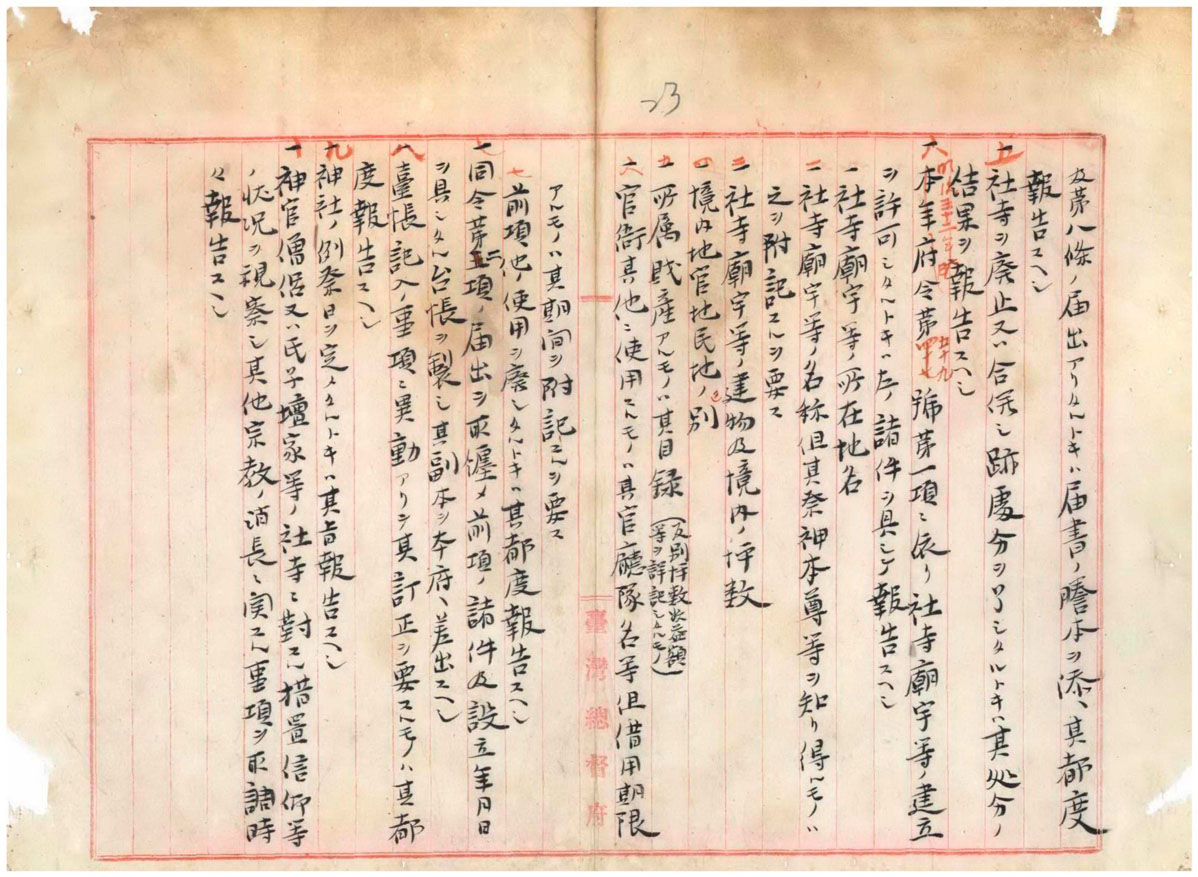 23
及第八條ノ届出アリタルトキハ届書ノ謄本ヲ添ヘ其都度
報告スヘシ
五
一社寺ヲ廃止又ハ合併シ跡處分ヲ了シタルトキハ其処分ノ
結果ヲ報告スヘシ
六 明治三十二年
一本年府令第四十七號第一項ニ依リ社寺廟宇等ノ建立
五十九
ヲ許可シタルトキハ左ノ諸件ヲ具シテ報告スヘシ
一社寺廟宇等ノ所在地名
二社寺廟宇等ノ名称但其祭神本尊等ヲ知リ得ルモノハ
之ヲ附記スルヲ要ス
三社寺廟宇等ノ建物及境内ノ坪数
四境内地官地民地ノ別
五所属財産アルモノハ其目録(反別坪数収益額等ヲ詳記シタルモノ)
六官衙其他ニ使用スルモノハ其官廳隊名等但借用期限
臺灣總督府
アルモノハ其期間ヲ附記スルヲ要ス
七前項他ノ使用ヲ廃シタルトキハ其都度報告スヘシ
七
一同令第二項ノ届出ヲ取纏メ前項ノ諸件及設立年月日
ヲ具シタル台帳ヲ製シ其副本ヲ本府ヘ差出スヘシ
八
一臺帳記入ノ事項ニ異動アリシ其訂正ヲ要スルモノハ其都
度報告スヘシ
九
一神社ノ例祭日ヲ定メタルトキハ其旨報告スヘシ
十
一神官僧侶又ハ氏子壇家等ノ社寺ニ對スル措置信仰等
ノ状况ヲ視察シ其他宗教ノ消長ニ関スル事項ヲ取調時
々報告スヘシ